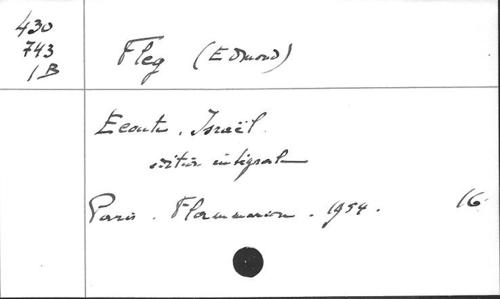 430
743
1B
Fleg (Edmond)
Ecoute, Israël
édition intégrale
Paris. Flammarion. 1954. 16